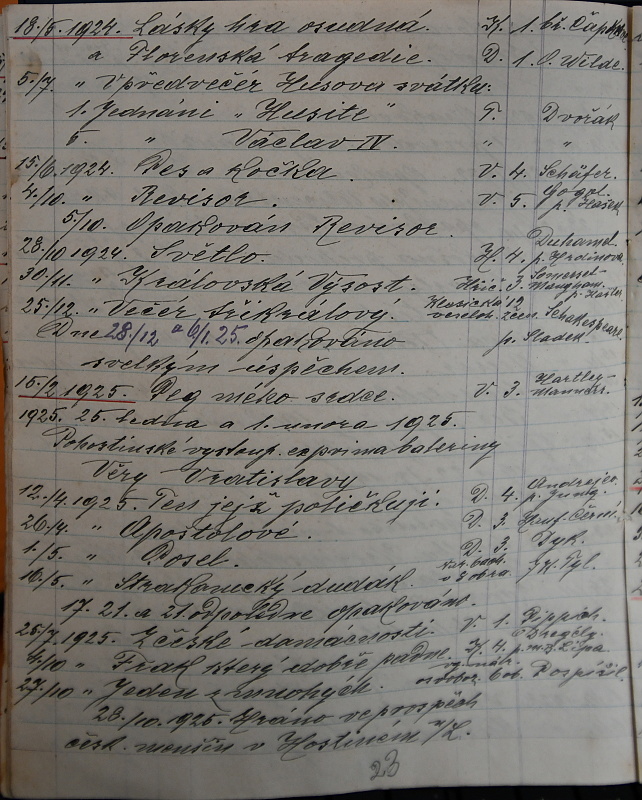 18./5. 1924. Lásky hra osudná. H. 1. br. Čapkové
a Florenská tragedie. D. 1. O. Wilde.
5./7. " V předvečér Husova svátku:
1. Jednáni " Husité " T. Dvořák
5. " Václav IV. " "
15./6. 1924. Pes a kočka. V. 4. Schäfer.
4./10. " Revisor. V. 5. Gogol. p. Hašek
5./10. Opakován Revisor.
28./10 1924. Světlo. H. 4. Duhamel. p. Hrdinová
30./11. " Královská Výsost. 3. Somerset-Maugham.
25./12. " Večér tříkrálový. Klasická veseloh. 12 Schakespeare.
Dne 28./12 a 6/1. 25. opakováno p. Sladek.
s velkým úspěchem.
15./2. 1925. Peg mého srdce. V. 3. Hartley-Manners.
1925. 25. ledna a 1. února 1925.
Pohostinské vystoup. ex prima baleriny
Věry Vratislavy
12./4. 1925. Ten jejž poličkují. D. 4. Andrejev. p. Jung.
26./4. " Apoštolové. D. 3.
1./5. " Posel. D. 3. Dyk.
10./5. " Strakonický dudák. J. K. Tyl.
17. 21. a 21. odpoledne opakováno.
25./7. 1925. Z české domácnosti. V. 1. Pippich.
4./10 " Frak který dobře padne. H. 4. Dregely. p. m. B. Lípa
27./10 " Jeden z mnohých. 6 ob. Pospíšil.
28./10. 1925. Hráno ve prospěch
česk. menšin v Hostinném n/L.
23